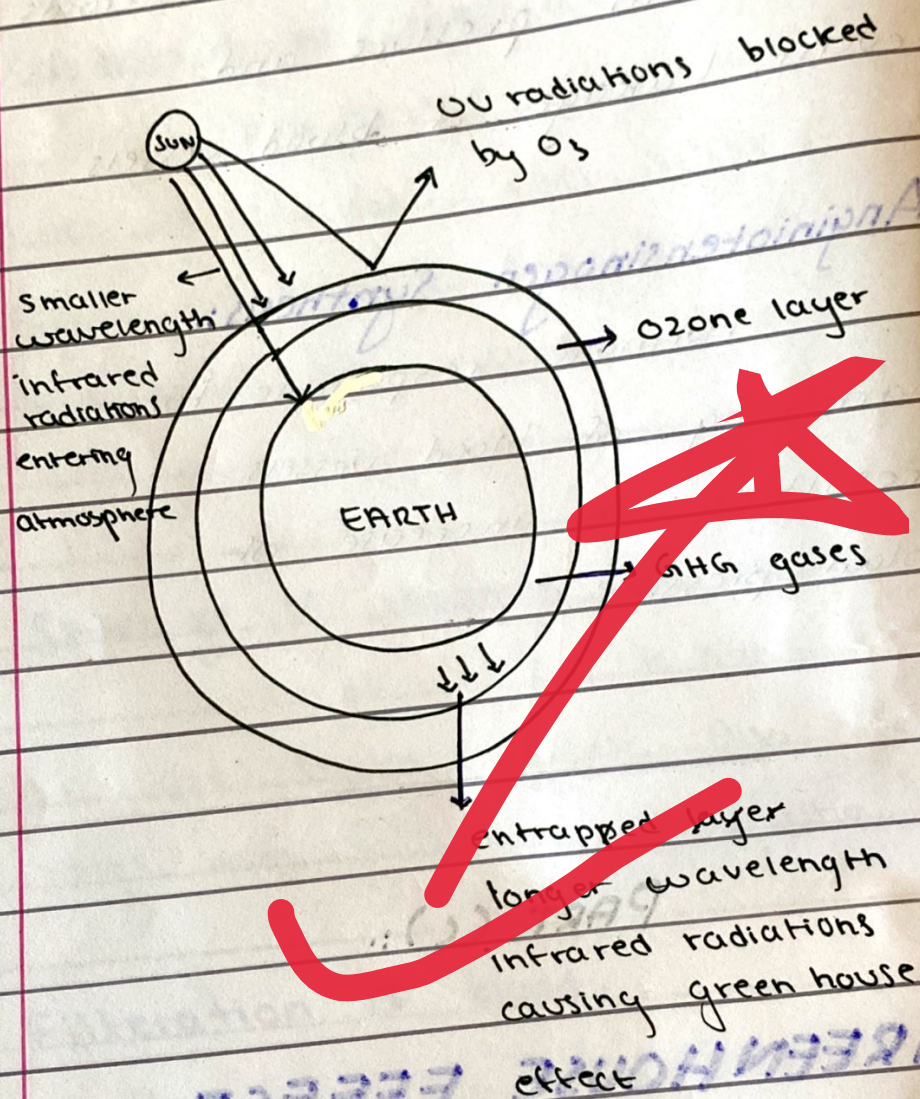 UV radiations blocked
by O3
SUN
smaller
wavelength
infrared
radiations
entering
atmosphere
ozone layer
EARTH
GHG gases
entrapped layer
longer wavelength
infrared radiations
causing green house
effect